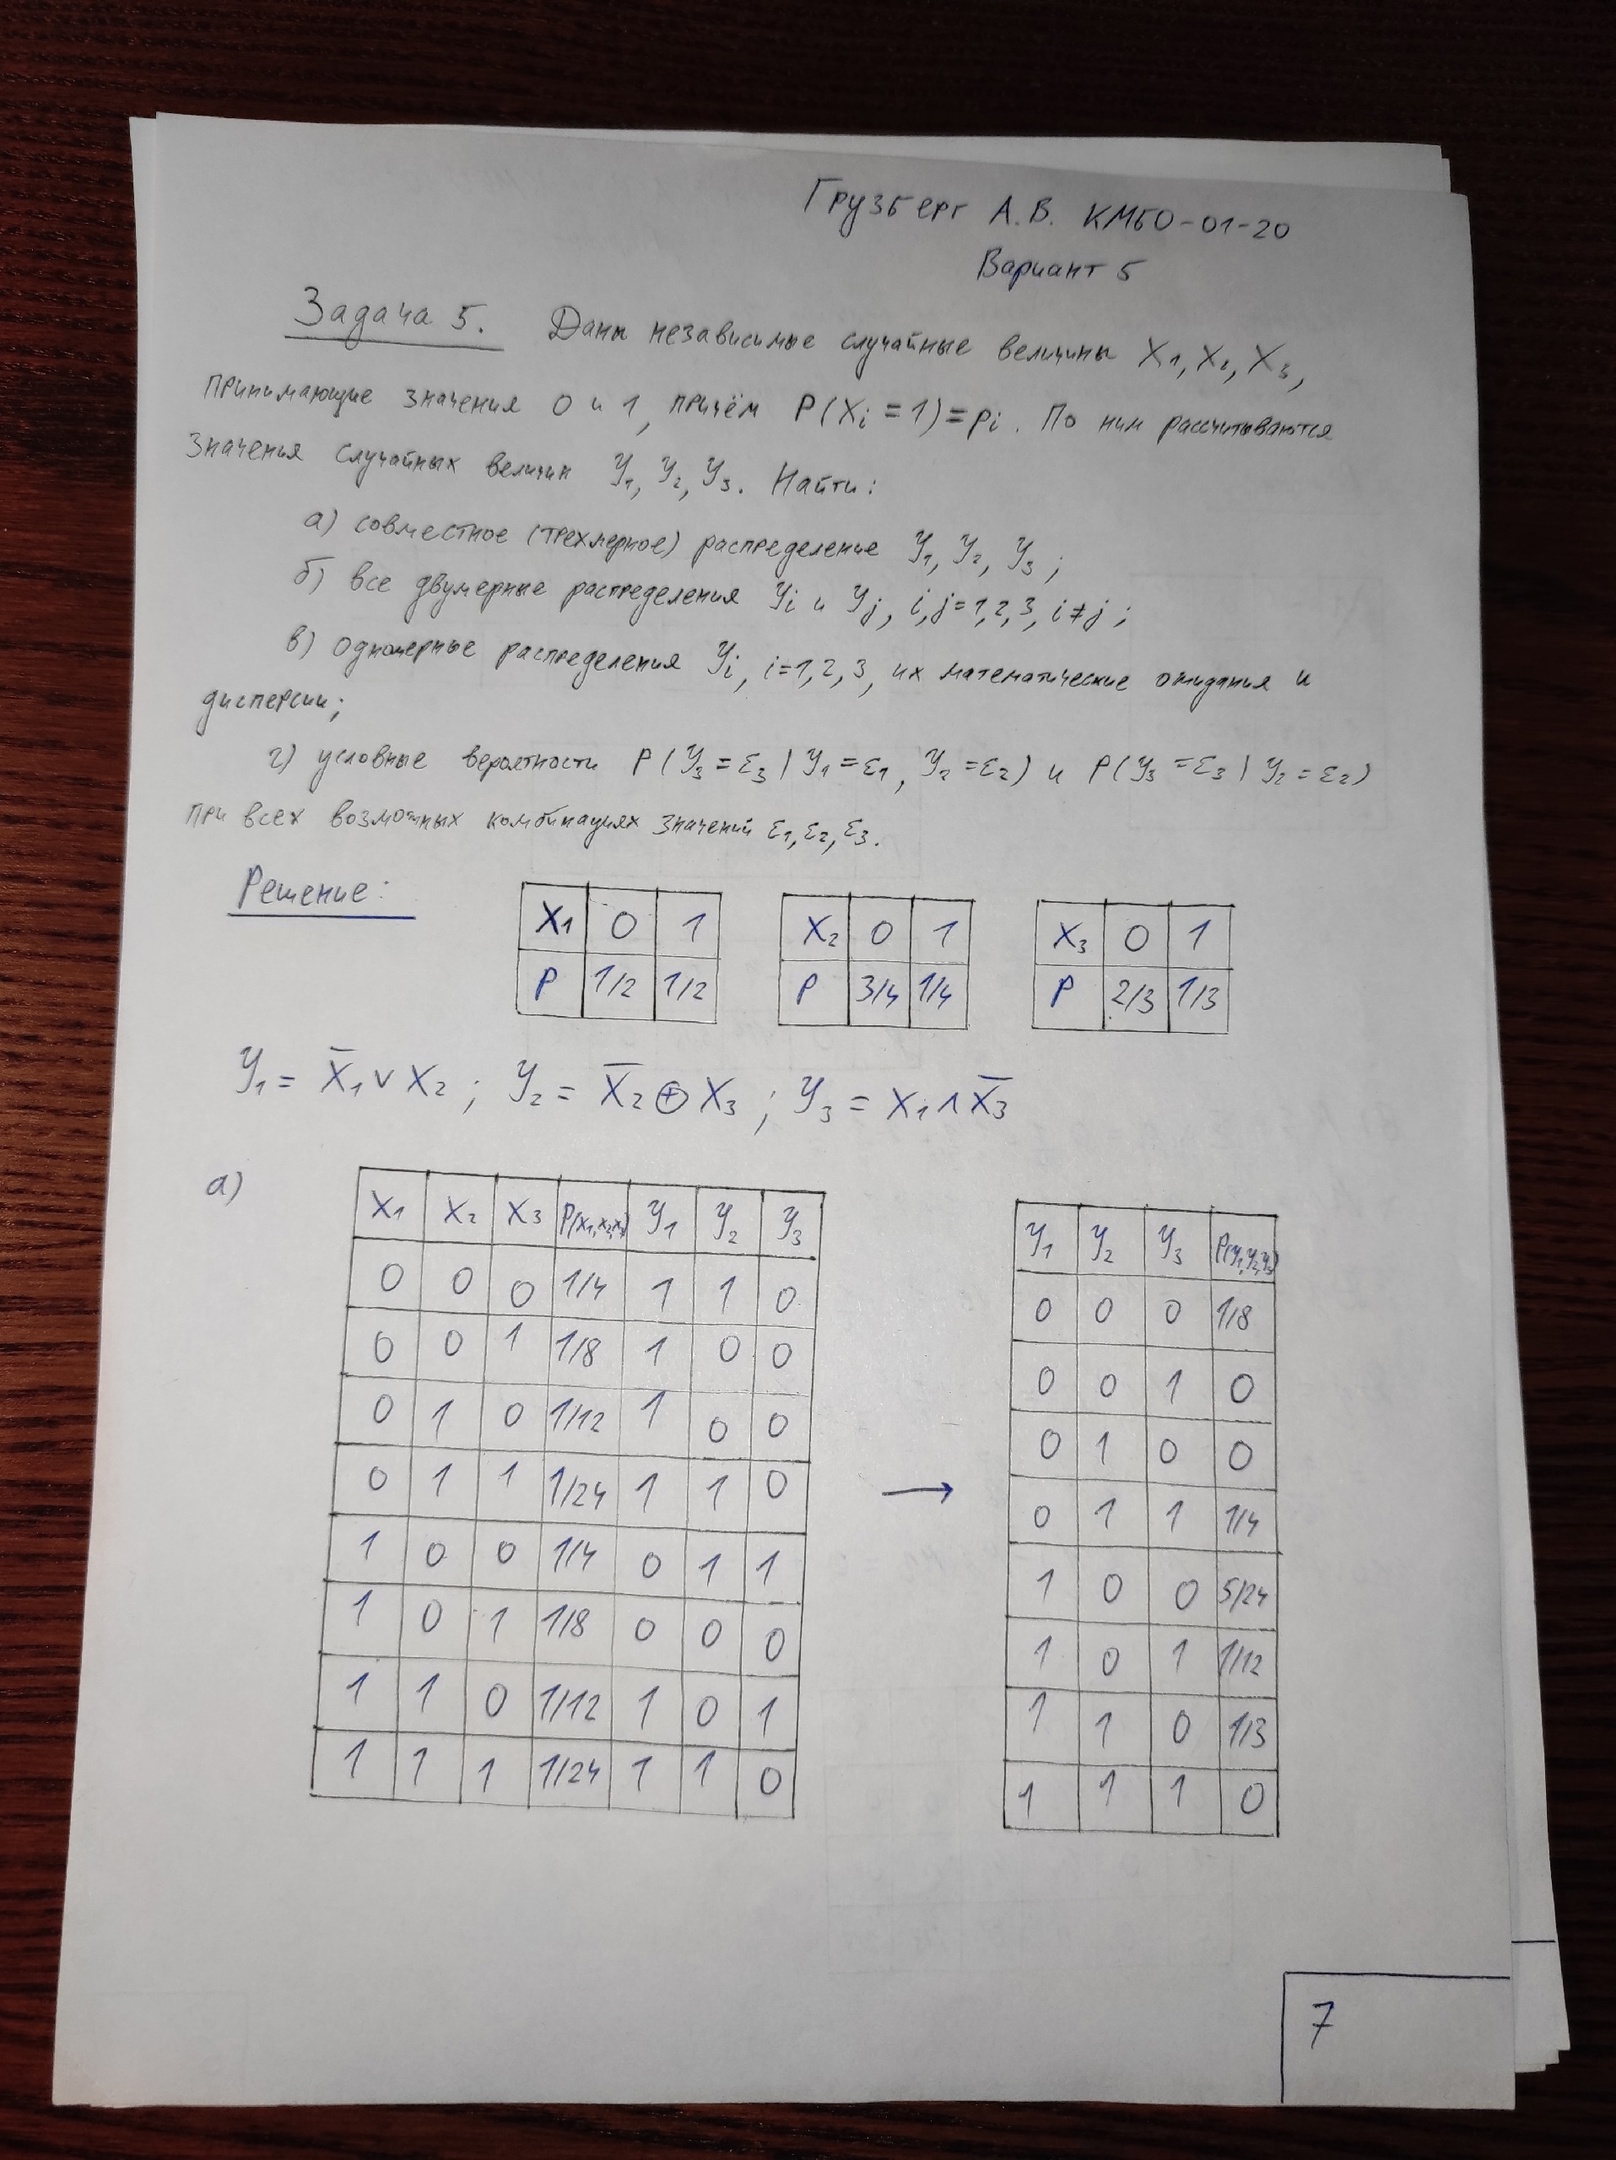 Грузберг А.В. КМБО-01-20
Вариант 5
Задача 5. Даны независимые случайные величины X₁, X₂, X₃,
принимающие значения 0 и 1, причём P(Xi = 1) = pi. По ним рассчитываются
значения случайных величин Y₁, Y₂, Y₃. Найти:
а) совместное (трехмерное) распределение Y₁, Y₂, Y₃;
б) все двумерные распределения Yi и Yj, i,j=1,2,3, i≠j;
в) одномерные распределения Yi, i=1,2,3, их математические ожидания и
дисперсии;
г) условные вероятности P(Y₃=ε₃|Y₁=ε₁, Y₂=ε₂) и P(Y₃=ε₃|Y₂=ε₂)
при всех возможных комбинациях значений ε₁, ε₂, ε₃.
Решение:
X₁ 0 1
P 1/2 1/2
X₂ 0 1
P 3/4 1/4
X₃ 0 1
P 2/3 1/3
Y₁ = X̅₁ ∨ X₂ ; Y₂ = X̅₂ ⊕ X₃ ; Y₃ = X₁ ∧ X̅₃
а)
X₁ X₂ X₃ P(X₁,X₂,X₃) Y₁ Y₂ Y₃
0 0 0 1/4 1 1 0
0 0 1 1/8 1 0 0
0 1 0 1/12 1 0 0
0 1 1 1/24 1 1 0
1 0 0 1/4 0 1 1
1 0 1 1/8 0 0 0
1 1 0 1/12 1 0 1
1 1 1 1/24 1 1 0
→
Y₁ Y₂ Y₃ P(Y₁,Y₂,Y₃)
0 0 0 1/8
0 0 1 0
0 1 0 0
0 1 1 1/4
1 0 0 5/24
1 0 1 1/12
1 1 0 1/3
1 1 1 0
7